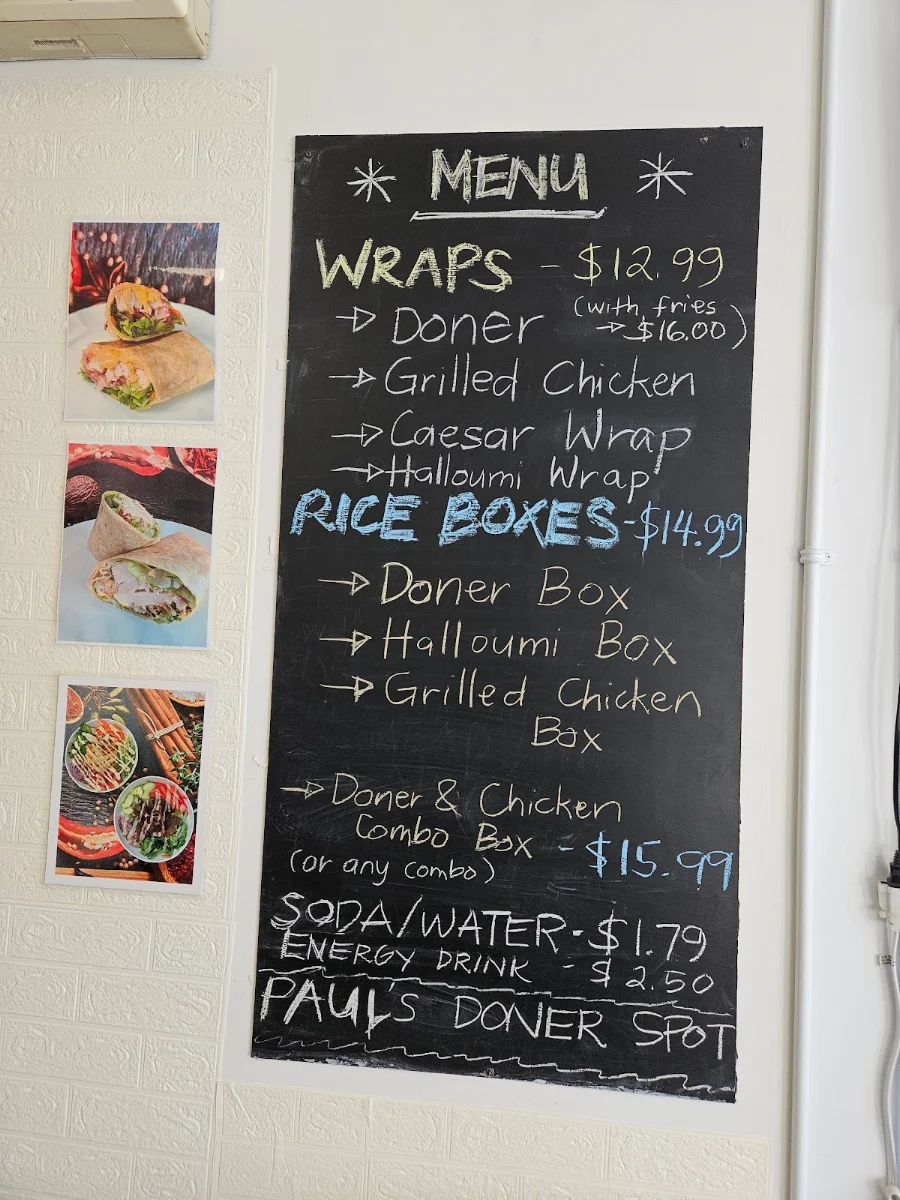 * MENU *
WRAPS - $12.99
(with fries
→ $16.00)
→ Doner
→ Grilled Chicken
→ Caesar Wrap
→ Halloumi Wrap
RICE BOXES - $14.99
→ Doner Box
→ Halloumi Box
→ Grilled Chicken
Box
→ Doner & Chicken
Combo Box - $15.99
(or any combo)
SODA/WATER - $1.79
ENERGY DRINK - $2.50
PAUL'S DONER SPOT